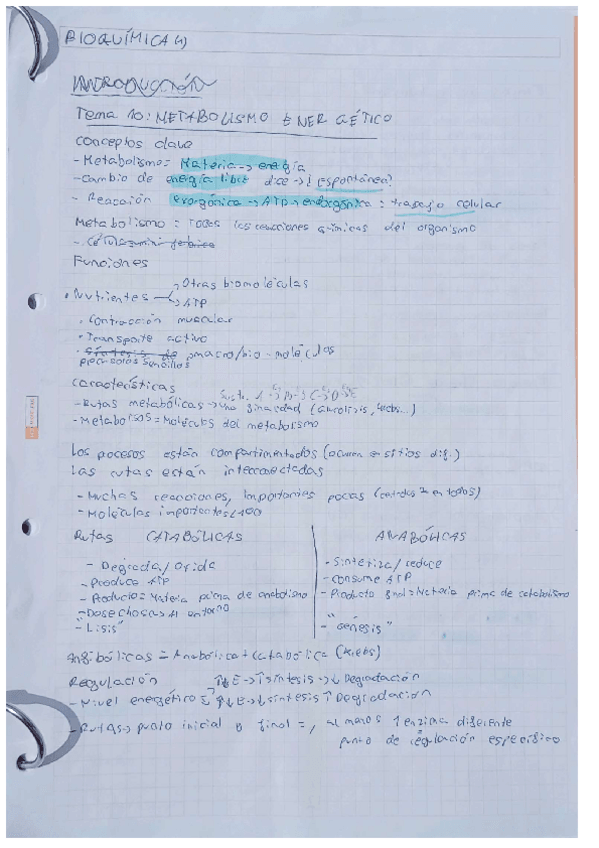 BIOQUÍMICA (4)
INTRODUCCIÓN
Tema 10: METABOLISMO ENERGÉTICO
Conceptos clave
- Metabolismo: Materia → energía
- Cambio de energía libre dice → ¿Espontánea?
- Reacción exergónica → ATP → endergónica: trabajo celular
Metabolismo: Todas las reacciones químicas del organismo
Funciones
• Nutrientes → Otras biomoléculas
→ ATP
• Contracción muscular
• Transporte activo
• macro/bio-moléculas
precursores sencillos
Características
- Rutas metabólicas → una finalidad (Glucolisis, Krebs...)
- Metabolitos = Moléculas del metabolismo
Los pocesos están compartimentados (ocurren en sitios dif.)
Las rutas están interconectadas
- Muchas reacciones, Importantes pocas
- Moléculas importantes <100
Rutas CATABÓLICAS
- Degrada/Oxida
- Produce ATP
- Producto = Materia prima de anabolismo
- Desechos → Al entorno
- "Lisis"
ANABÓLICAS
- Sintetiza/reduce
- Consume ATP
- Producto final = Materia prima de catabolismo
- "Génesis"
Anfibólicas = Anabólica + Catabólica (Krebs)
Regulación ↑E → ↑síntesis → ↓Degradación
- Nivel energético ↓E → ↓síntesis ↑Degradación
- Rutas → punto inicial o final =, al menos 1 enzima diferente
punto de regulación específico